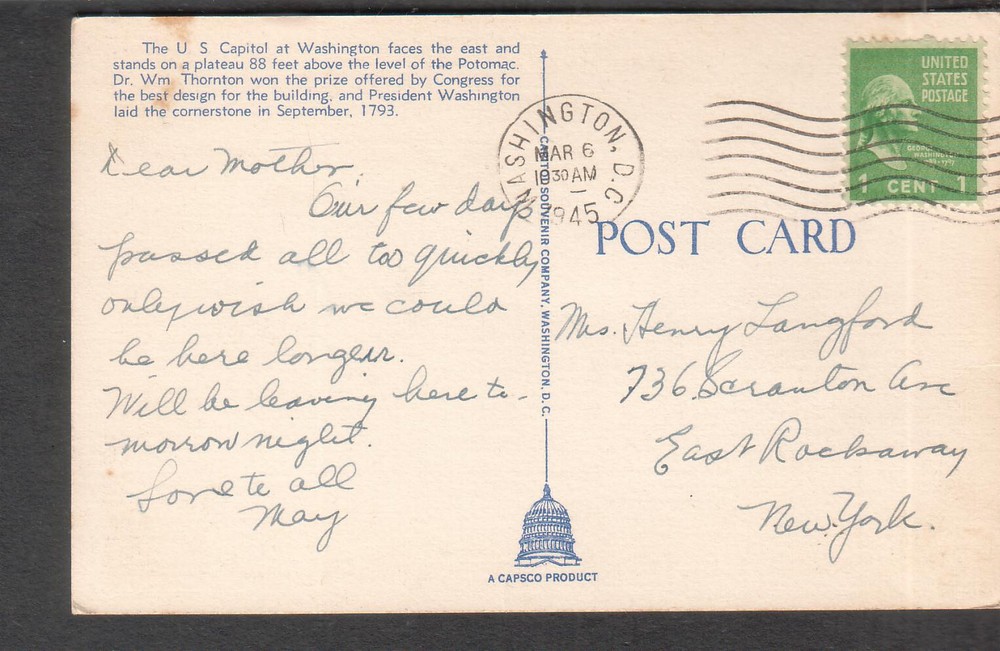 The U S Capitol at Washington faces the east and
stands on a plateau 88 feet above the level of the Potomac.
Dr. Wm. Thornton won the prize offered by Congress for
the best design for the building, and President Washington
laid the cornerstone in September, 1793.
Dear Mother,
Our few days
passed all too quickly
only wish we could
be here longer.
Will be leaving here to-
morrow night.
Love to all
May
WASHINGTON, D.C.
MAR 6
1945
CAPITOL SOUVENIR COMPANY, WASHINGTON, D. C.
A CAPSCO PRODUCT
UNITED
STATES
POSTAGE
GEORGE
WASHINGTON
1 CENT 1
POST CARD
Mrs. Henry Langford
736 Scranton Ave
East Rockaway
New York.